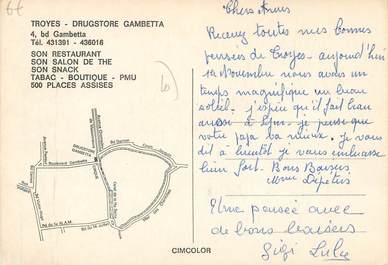 TROYES - DRUGSTORE GAMBETTA
4, bd Gambetta
Tél. 431391 - 436016
SON RESTAURANT
SON SALON DE THE
SON SNACK
TABAC - BOUTIQUE - PMU
500 PLACES ASSISES
DRUGSTORE
GAMBETTA
Boulevard Gambetta
CIMCOLOR
Chers Amis
Recevez toutes mes bonnes
pensées de Troyes - aujourd'hui
1er Novembre nous avons un
temps magnifique un beau
soleil - j'espère qu'il fait beau
aussi à Lyon - je pense que
votre papa va mieux. Je vous
dit à bientôt je vous embrasse
bien fort. Bons Baisers
Mme
Une pensée avec
de bons baisers
Gigi